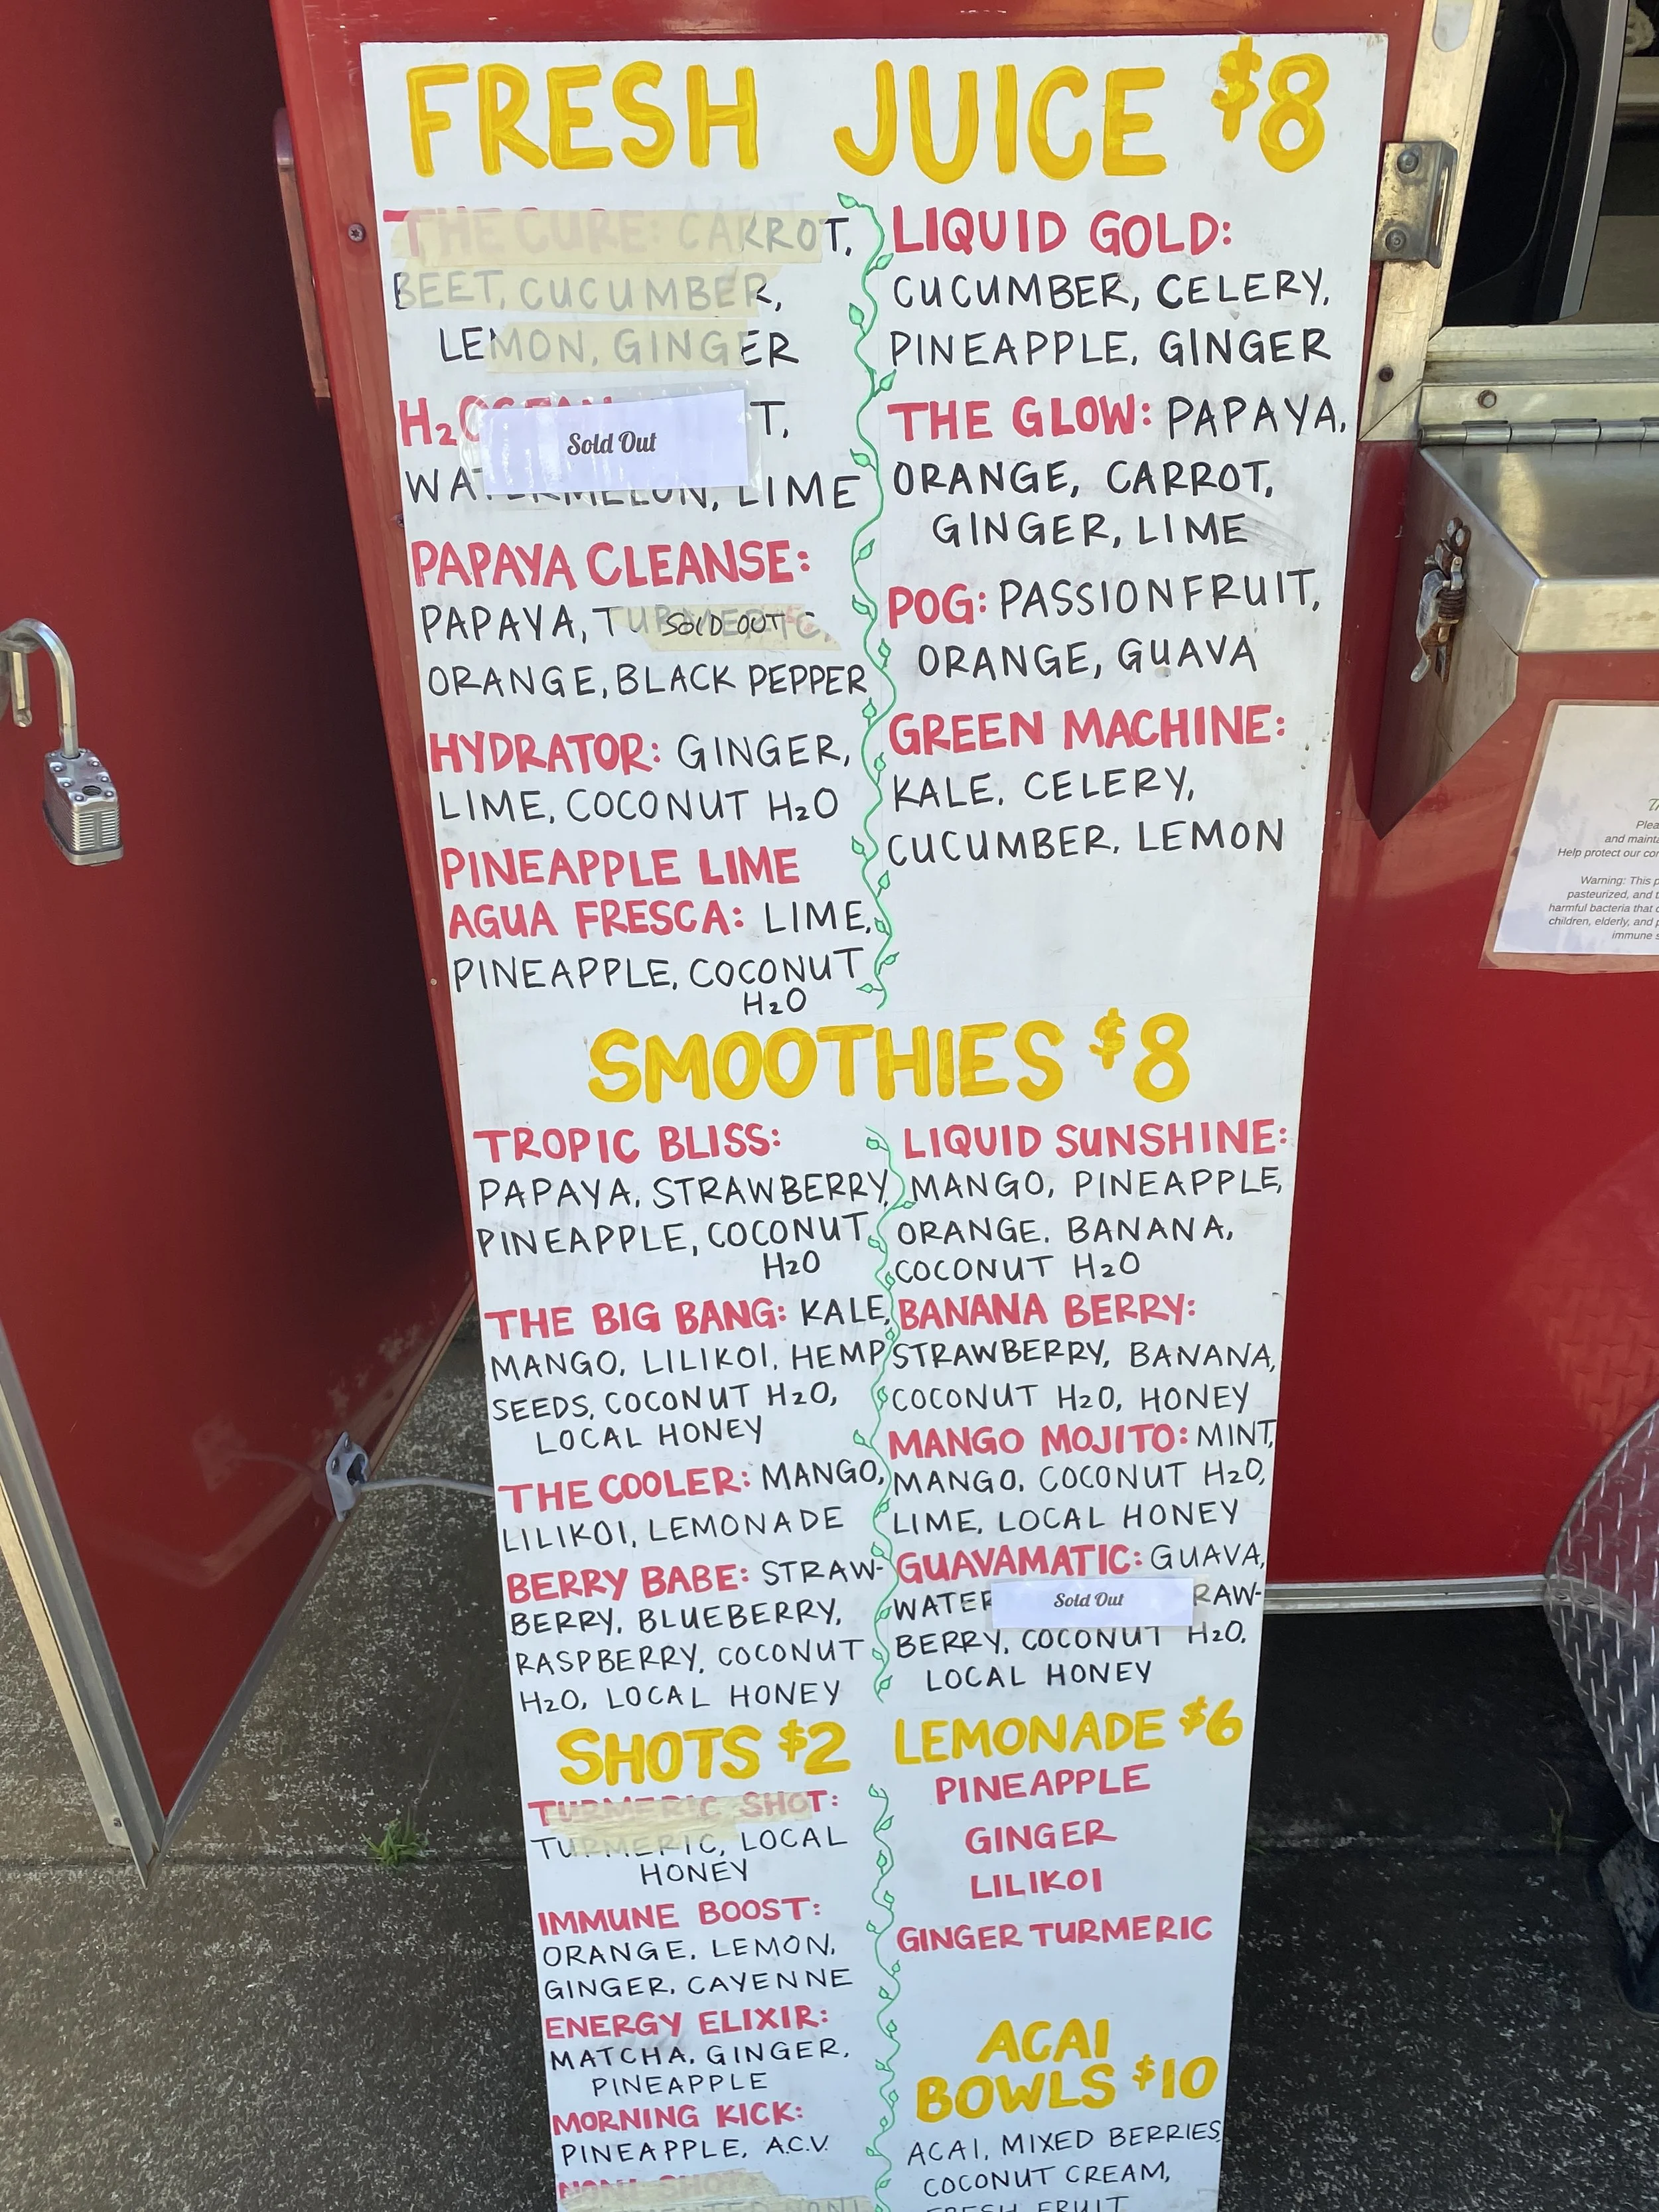 FRESH JUICE $8
THE CURE: CARROT,
BEET, CUCUMBER,
LEMON, GINGER
H₂OCEAN
Sold Out
WATERMELON, LIME
PAPAYA CLEANSE:
PAPAYA, TURMERIC,
SOLD OUT
ORANGE, BLACK PEPPER
HYDRATOR: GINGER,
LIME, COCONUT H₂O
PINEAPPLE LIME
AGUA FRESCA: LIME,
PINEAPPLE, COCONUT
H₂O
LIQUID GOLD:
CUCUMBER, CELERY,
PINEAPPLE, GINGER
THE GLOW: PAPAYA,
ORANGE, CARROT,
GINGER, LIME
POG: PASSIONFRUIT,
ORANGE, GUAVA
GREEN MACHINE:
KALE, CELERY,
CUCUMBER, LEMON
SMOOTHIES $8
TROPIC BLISS:
PAPAYA, STRAWBERRY,
PINEAPPLE, COCONUT
H₂O
THE BIG BANG: KALE,
MANGO, LILIKOI, HEMP
SEEDS, COCONUT H₂O,
LOCAL HONEY
THE COOLER: MANGO,
LILIKOI, LEMONADE
BERRY BABE: STRAW-
BERRY, BLUEBERRY,
RASPBERRY, COCONUT
H₂O, LOCAL HONEY
LIQUID SUNSHINE:
MANGO, PINEAPPLE,
ORANGE, BANANA,
COCONUT H₂O
BANANA BERRY:
STRAWBERRY, BANANA,
COCONUT H₂O, HONEY
MANGO MOJITO: MINT,
MANGO, COCONUT H₂O,
LIME, LOCAL HONEY
GUAVAMATIC: GUAVA,
WATER RAW-
Sold Out
BERRY, COCONUT H₂O,
LOCAL HONEY
SHOTS $2
TURMERIC SHOT:
TURMERIC, LOCAL
HONEY
IMMUNE BOOST:
ORANGE, LEMON,
GINGER, CAYENNE
ENERGY ELIXIR:
MATCHA, GINGER,
PINEAPPLE
MORNING KICK:
PINEAPPLE, A.C.V.
NONI SHOT
NONI
LEMONADE $6
PINEAPPLE
GINGER
LILIKOI
GINGER TURMERIC
ACAI
BOWLS $10
ACAI, MIXED BERRIES,
COCONUT CREAM,
FRESH FRUIT
and
Help protect our
Warning: This
pasteurized, and
harmful bacteria that
children, elderly, and
immune